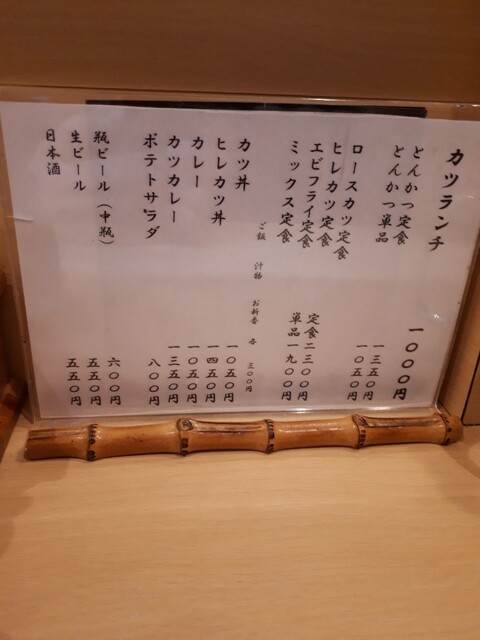 カツランチ 一〇〇〇円
とんかつ定食 一三五〇円
とんかつ単品 一〇五〇円
ロースカツ定食
ヒレカツ定食
エビフライ定食 定食二三〇〇円
ミックス定食 単品一九〇〇円
ご飯 汁物 お新香 各 三〇〇円
カツ丼 一〇五〇円
ヒレカツ丼 一四五〇円
カレー 一〇五〇円
カツカレー 一三五〇円
ポテトサラダ 八〇〇円
瓶ビール(中瓶) 六〇〇円
生ビール 五五〇円
日本酒 五五〇円